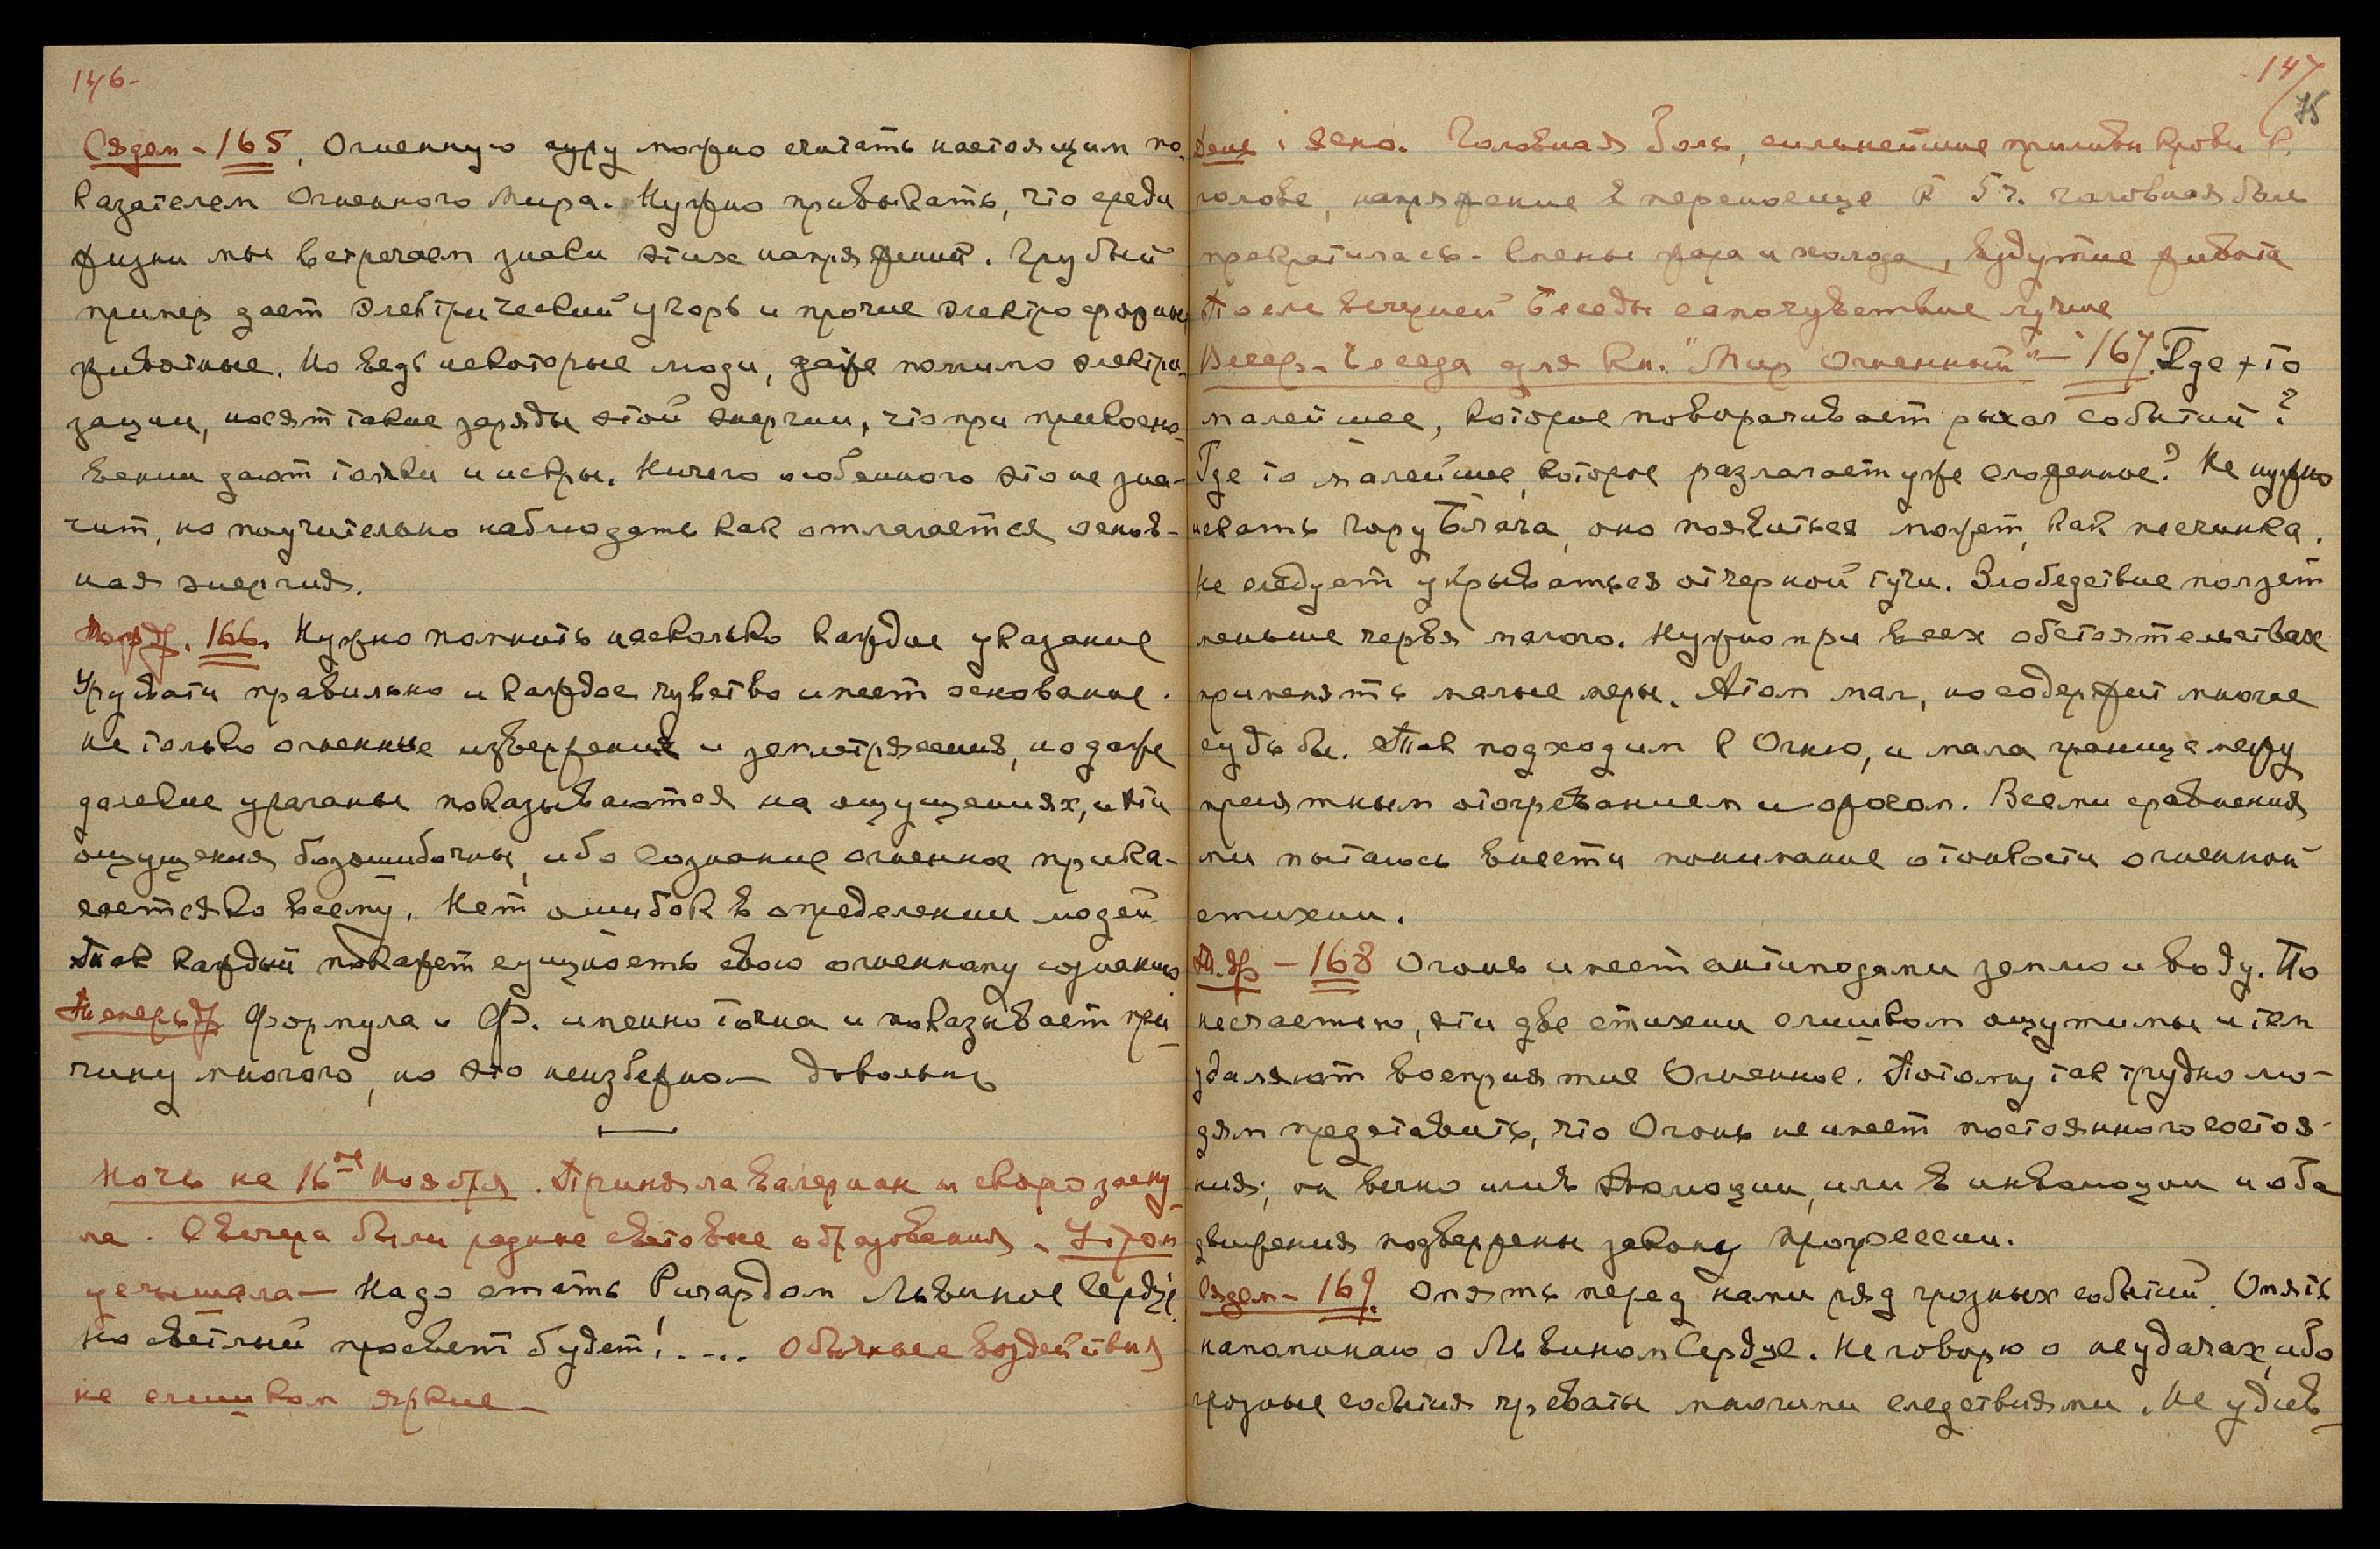 146-
Сядем - 165. Огненную ауру можно считать настоящим по-
казателем Огненного Мира. Нужно привыкать, что среди
жизни мы встречаем знаки этих напряжений. Грубый
пример дает электрический угорь и прочие электрофорные
животные. Но ведь некоторые люди, даже помимо электри-
зации, носят такие заряды этой энергии, что при прикосно-
вении дают толчки и искры. Ничего особенного это не зна-
чит, но поучительно наблюдать как отлагается основ-
ная энергия.
166. Нужно помнить насколько каждое указание
Урусвати правильно и каждое чувство имеет основание.
Не только огненные извержения и землетрясения, но даже
далекие ураганы показываются на ощущениях, и эти
ощущения безошибочны, ибо сознание огненное прика-
сается ко всему. Нет ошибок в определении людей
Так каждый покажет сущность свою огненному сознанию
Теперь др. Формула и Ф. именно точна и показывает при-
чину многого, но это неизбежно — довольно
Ночь на 16ое Ноября. Приняла валериан и скоро засну
ла. С вечера были редкие световые образования. Утром
услышала — Надо стать Ричардом Львиное Сердце.
Но светлый просвет будет! .... Обычные воздействия
не слишком яркие —
147
75
День: ясно. Головная боль, сильнейшие приливы крови к
голове, напряжение в переносице к 5 ч. головная боль
прекратилась. Смены жара и холода, вздутие живота
После вечерней Беседы самочувствие лучше
Вечер. Беседа для кн. "Мир Огненный" — 167. Где то
малейшее, которое поворачивает рычаг событий?
Где то малейшее, которое разлагает уже сложенное? Не нужно
искать гору Блага, оно появиться может, как песчинка.
Не следует укрываться от черной тучи. Злобедствие ползет
меньше червя малого. Нужно при всех обстоятельствах
применять малые меры. Атом мал, но содержит многие
судьбы. Так подходим к Огню, и мала граница между
приятным отогреванием и ожогом. Всеми сравнения
ми пытаюсь внести понимание о тонкости огненной
стихии.
Т. др — 168 Огонь имеет антиподами землю и воду. По
несчастью, эти две стихии слишком ощутимы и тем
удаляют восприятие Огненное. Потому так трудно лю-
дям представить, что Огонь не имеет постоянного состоя-
ния; он вечно или в эволюции, или в инволюции и оба
движения подвержены закону прогрессии.
Сядем - 169. Опять перед нами ряд грозных событий. Опять
напоминаю о Львином Сердце. Не говорю о неудачах, ибо
грозные события чреваты многими следствиями. Не удив-